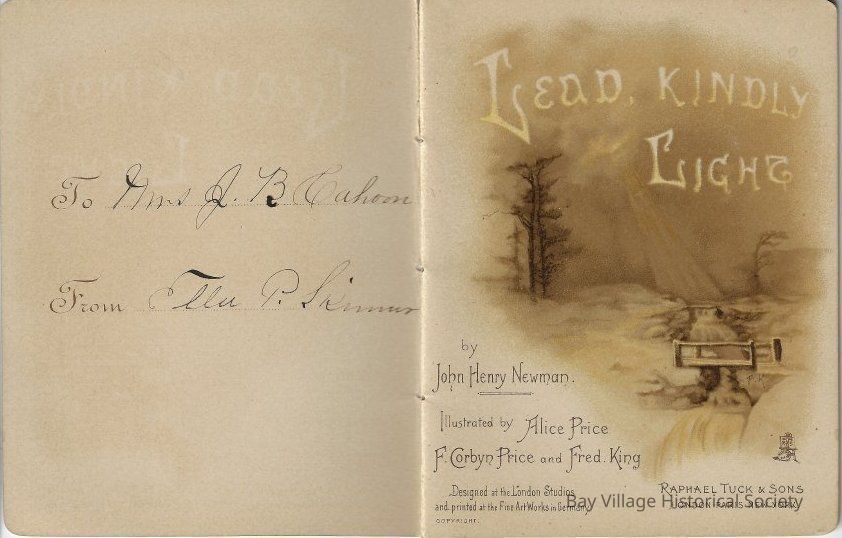 To Mrs J. B Cahoon
From Ella P. Skinner
LEAD, KINDLY
LIGHT
by
John Henry Newman.
Illustrated by Alice Price
F. Corbyn Price and Fred. King
Designed at the London Studios
and printed at the Fine Art Works in Germany
COPYRIGHT.
RAPHAEL TUCK & SONS
LONDON PARIS NEW YORK
Bay Village Historical Society